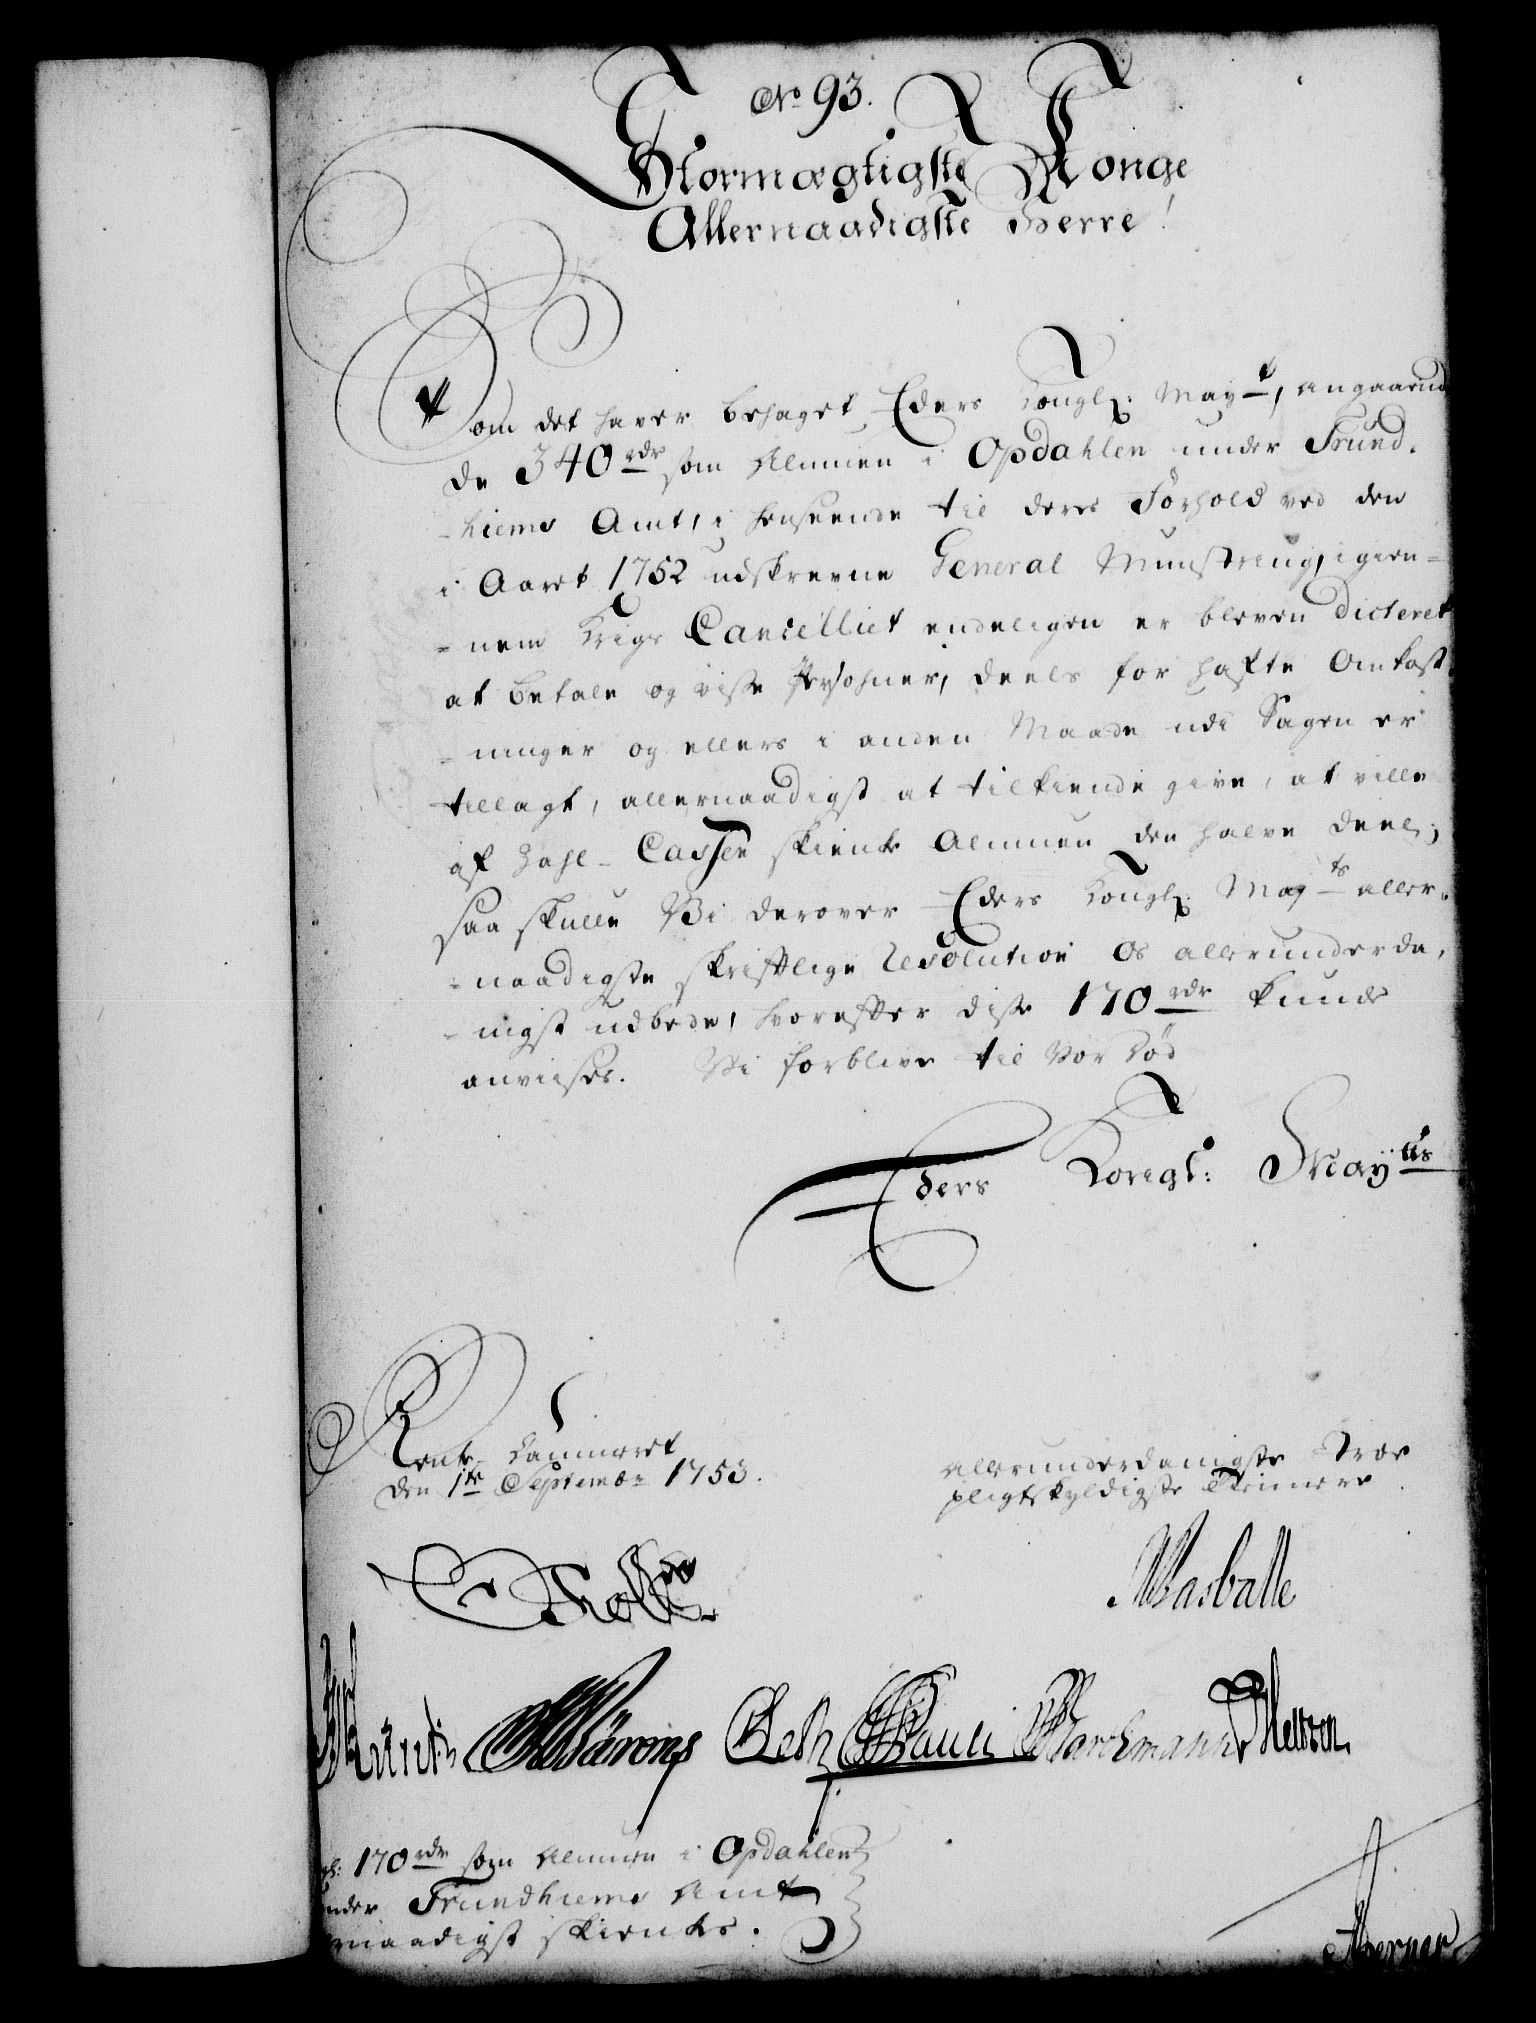 No 93.
Stormægtigste Konge
Allernaadigste Herre!
Som det haver behaget Eders Kongl: Mayt, angaaende
de 340 rdr som Almuen i Opdahlen under Trund-
-hiems Amt, i henseende til deres Forhold ved den
i Aaret 1752 udskrevne General Munstring, igien-
-nem Krigs Cancelliet endeligen er bleven dicteret
at betale og visse Persohner, deels for hafte Omkost-
-ninger og ellers i anden Maade udi Sagen er
tillagt, allernaadigst at tilkiende give, at ville
af Zahl-Cassen skienke Almuen den halve Deel;
saa skulle Vi derover Eders Kongl: Mayts aller-
-naadigste skriftlige Resolution Os allerunderda-
-nigst udbede, hvorefter disse 170 rdr kunde
anviises. Vi forblive til Vor Død
Eders Kongl: Mayts
Rente Cammeret
den 1te Septembr 1753.
allerunderdanigste Troe
pligtskyldigste Tienere
Holst
Wasballe
Wärens Beth Pauli Marthmann
170 rdr som Almuen i Opdahlen
under Trundhiems Amt
naadigst skienkes.